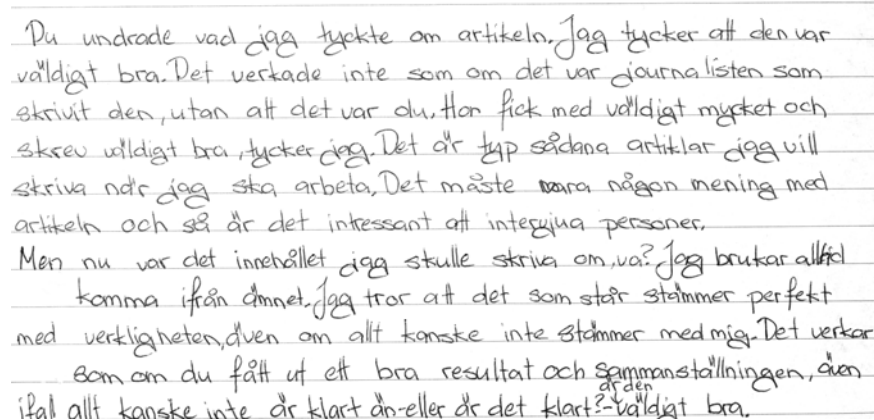 Du undrade vad jag tyckte om artikeln. Jag tycker att den var
väldigt bra. Det verkade inte som om det var journalisten som
skrivit den, utan att det var du. Hon fick med väldigt mycket och
skrev väldigt bra, tycker jag. Det är typ sådana artiklar jag vill
skriva när jag ska arbeta. Det måste vara någon mening med
artikeln och så är det intressant att intervjua personer.
Men nu var det innehållet jag skulle skriva om, va? Jag brukar alltid
komma ifrån ämnet. Jag tror att det som står stämmer perfekt
med verkligheten, även om allt kanske inte stämmer med mig. Det verkar
som om du fått ut ett bra resultat och sammanställningen, även
är den
ifall allt kanske inte är klart än - eller är det klart? - väldigt bra.